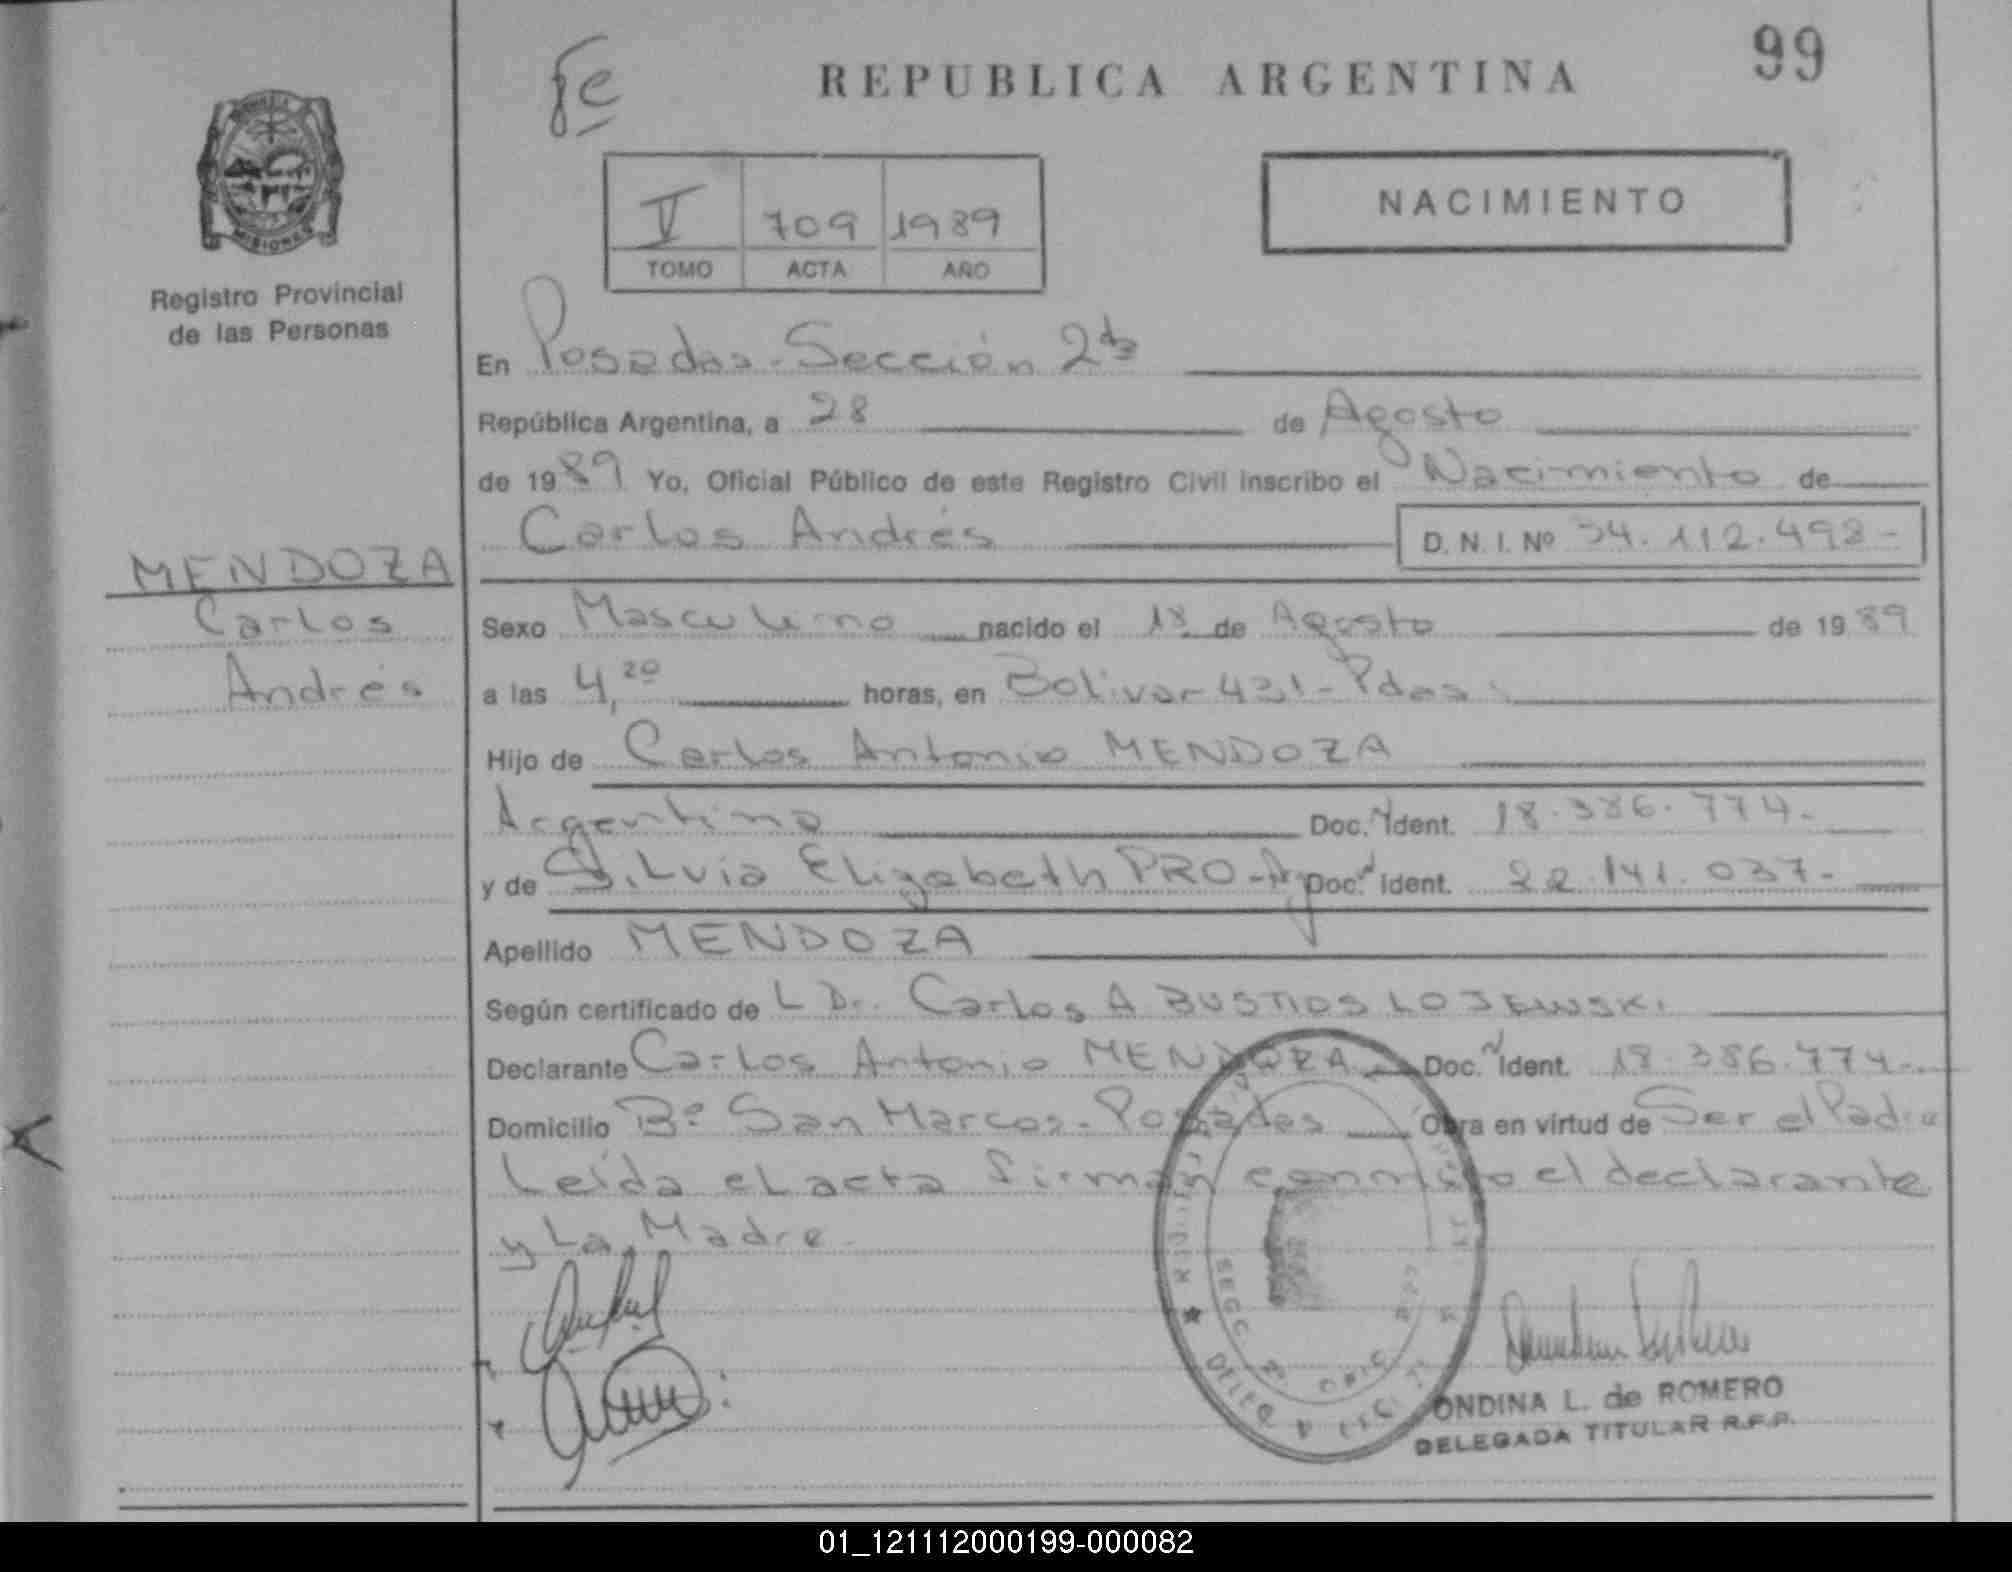 99
REPUBLICA ARGENTINA
MISIONES
Registro Provincial
de las Personas
V 709 1989
TOMO ACTA AÑO
NACIMIENTO
En Posadas - Sección 2da
República Argentina, a 28 de Agosto
de 1989 Yo, Oficial Público de este Registro Civil inscribo el Nacimiento de
Carlos Andrés D. N. I. Nº 34.112.498-
MENDOZA
Carlos
Andrés
Sexo Masculino nacido el 18 de Agosto de 1989
a las 4,20 horas, en Bolivar 431 - Pdas.
Hijo de Carlos Antonio MENDOZA
Argentino Doc. Ident. 18.386.774-
y de Silvia Elizabeth PRO - Arg Doc. Ident. 22.141.037-
Apellido MENDOZA
Según certificado de L Dr. Carlos A BUSTIOS LOJEWSKI
Declarante Carlos Antonio MENDOZA Doc. Ident. 18.386.774-
Domicilio Bº San Marcos - Posadas Obra en virtud de Ser el Padre
Leída el acta firman conmigo el declarante
y La Madre.
ONDINA L. de ROMERO
DELEGADA TITULAR R.P.P.
01_121112000199-000082